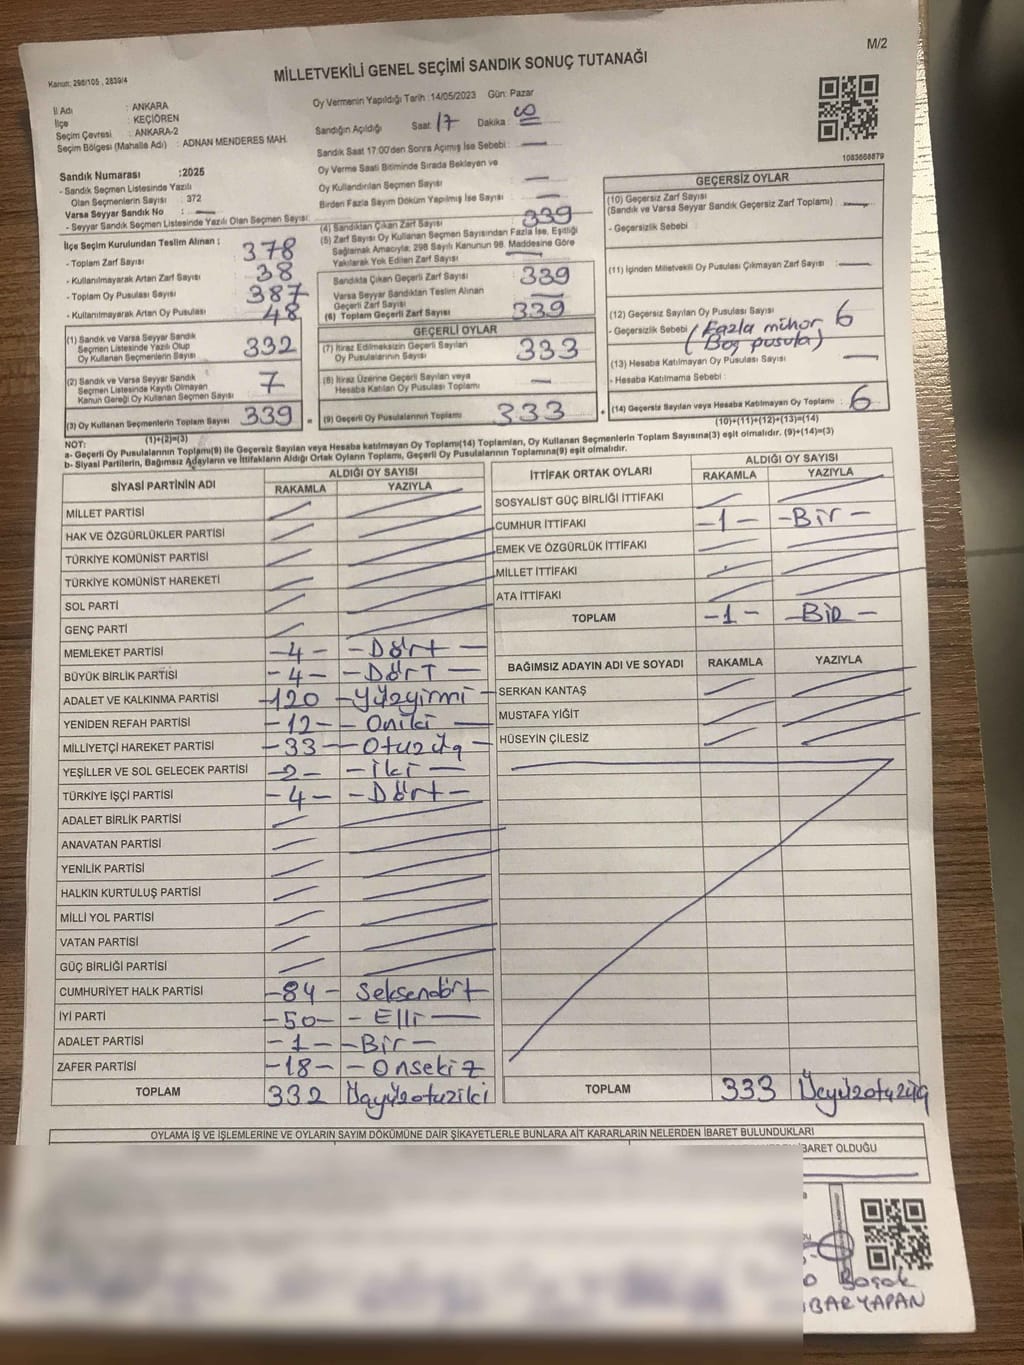 M/2
Kanun: 298/105 , 2839/4
MİLLETVEKİLİ GENEL SEÇİMİ SANDIK SONUÇ TUTANAĞI
İl Adı : ANKARA
İlçe : KEÇİÖREN
Seçim Çevresi : ANKARA-2
Seçim Bölgesi (Mahalle Adı) : ADNAN MENDERES MAH.
Oy Vermenin Yapıldığı Tarih :14/05/2023 Gün: Pazar
Sandığın Açıldığı Saat: 17 Dakika :
Sandık Saat 17:00'den Sonra Açımış İse Sebebi : —
Oy Verme Saati Bitiminde Sırada Bekleyen ve
Oy Kullandırılan Seçmen Sayısı —
Birden Fazla Sayım Döküm Yapılmış İse Sayısı : —
1083668879
Sandık Numarası :2025
- Sandık Seçmen Listesinde Yazılı
Olan Seçmenlerin Sayısı : 372
Varsa Seyyar Sandık No : —
- Seyyar Sandık Seçmen Listesinde Yazılı Olan Seçmen Sayısı:
İlçe Seçim Kurulundan Teslim Alınan :
- Toplam Zarf Sayısı : 378
- Kullanılmayarak Artan Zarf Sayısı : 38
- Toplam Oy Pusulası Sayısı : 387
- Kullanılmayarak Artan Oy Pusulası : 48
(1) Sandık ve Varsa Seyyar Sandık
Seçmen Listesinde Yazılı Olup
Oy Kullanan Seçmenlerin Sayısı : 332
(2) Sandık ve Varsa Seyyar Sandık
Seçmen Listesinde Kayıtlı Olmayan
Kanun Gereği Oy Kullanan Seçmen Sayısı : 7
(3) Oy Kullanan Seçmenlerin Toplam Sayısı : 339
(1)+(2)=(3)
(4) Sandıktan Çıkan Zarf Sayısı : 339
(5) Zarf Sayısı Oy Kullanan Seçmen Sayısından Fazla İse, Eşitliği
Sağlamak Amacıyla; 298 Sayılı Kanunun 98. Maddesine Göre
Yakılarak Yok Edilen Zarf Sayısı : —
Sandıkta Çıkan Geçerli Zarf Sayısı : 339
Varsa Seyyar Sandıktan Teslim Alınan
Geçerli Zarf Sayısı : —
(6) Toplam Geçerli Zarf Sayısı : 339
GEÇERLİ OYLAR
(7) İtiraz Edilmeksizin Geçerli Sayılan
Oy Pusulalarının Sayısı : 333
(8) İtiraz Üzerine Geçerli Sayılan veya
Hesaba Katılan Oy Pusulası Toplamı : —
= (9) Geçerli Oy Pusulalarının Toplamı : 333
GEÇERSİZ OYLAR
(10) Geçersiz Zarf Sayısı
(Sandık ve Varsa Seyyar Sandık Geçersiz Zarf Toplamı) : —
- Geçersizlik Sebebi :
(11) İçinden Milletvekili Oy Pusulası Çıkmayan Zarf Sayısı : —
(12) Geçersiz Sayılan Oy Pusulası Sayısı : 6
- Geçersizlik Sebebi : (Fazla mühür,
Boş pusula)
(13) Hesaba Katılmayan Oy Pusulası Sayısı : —
- Hesaba Katılmama Sebebi :
+ (14) Geçersiz Sayılan veya Hesaba Katılmayan Oy Toplamı : 6
(10)+(11)+(12)+(13)=(14)
NOT:
a- Geçerli Oy Pusulalarının Toplamı(9) ile Geçersiz Sayılan veya Hesaba katılmayan Oy Toplamı(14) Toplamları, Oy Kullanan Seçmenlerin Toplam Sayısına(3) eşit olmalıdır. (9)+(14)=(3)
b- Siyasi Partilerin, Bağımsız Adayların ve İttifakların Aldığı Ortak Oyların Toplamı, Geçerli Oy Pusulalarının Toplamına(9) eşit olmalıdır.
SİYASİ PARTİNİN ADI ALDIĞI OY SAYISI
RAKAMLA YAZIYLA
MİLLET PARTİSİ
HAK VE ÖZGÜRLÜKLER PARTİSİ
TÜRKİYE KOMÜNİST PARTİSİ
TÜRKİYE KOMÜNİST HAREKETİ
SOL PARTİ
GENÇ PARTİ
MEMLEKET PARTİSİ -4- -Dört-
BÜYÜK BİRLİK PARTİSİ -4- -DÖRT-
ADALET VE KALKINMA PARTİSİ -120 -Yüzyirmi-
YENİDEN REFAH PARTİSİ -12- -Oniki-
MİLLİYETÇİ HAREKET PARTİSİ -33- -Otuzüç-
YEŞİLLER VE SOL GELECEK PARTİSİ -2- -iki-
TÜRKİYE İŞÇİ PARTİSİ -4- -Dört-
ADALET BİRLİK PARTİSİ
ANAVATAN PARTİSİ
YENİLİK PARTİSİ
HALKIN KURTULUŞ PARTİSİ
MİLLİ YOL PARTİSİ
VATAN PARTİSİ
GÜÇ BİRLİĞİ PARTİSİ
CUMHURİYET HALK PARTİSİ -84- Seksendört
İYİ PARTİ -50- -Elli-
ADALET PARTİSİ -1- -Bir-
ZAFER PARTİSİ -18- -Onsekiz
TOPLAM 332 Üçyüzotuziki
İTTİFAK ORTAK OYLARI ALDIĞI OY SAYISI
RAKAMLA YAZIYLA
SOSYALİST GÜÇ BİRLİĞİ İTTİFAKI
CUMHUR İTTİFAKI -1- -Bir-
EMEK VE ÖZGÜRLÜK İTTİFAKI
MİLLET İTTİFAKI
ATA İTTİFAKI
TOPLAM -1- -BİR-
BAĞIMSIZ ADAYIN ADI VE SOYADI RAKAMLA YAZIYLA
SERKAN KANTAŞ
MUSTAFA YİĞİT
HÜSEYİN ÇİLESİZ
TOPLAM 333 Üçyüzotuzüç
OYLAMA İŞ VE İŞLEMLERİNE VE OYLARIN SAYIM DÖKÜMÜNE DAİR ŞİKAYETLERLE BUNLARA AİT KARARLARIN NELERDEN İBARET BULUNDUKLARI
İBARET OLDUĞU
Başak